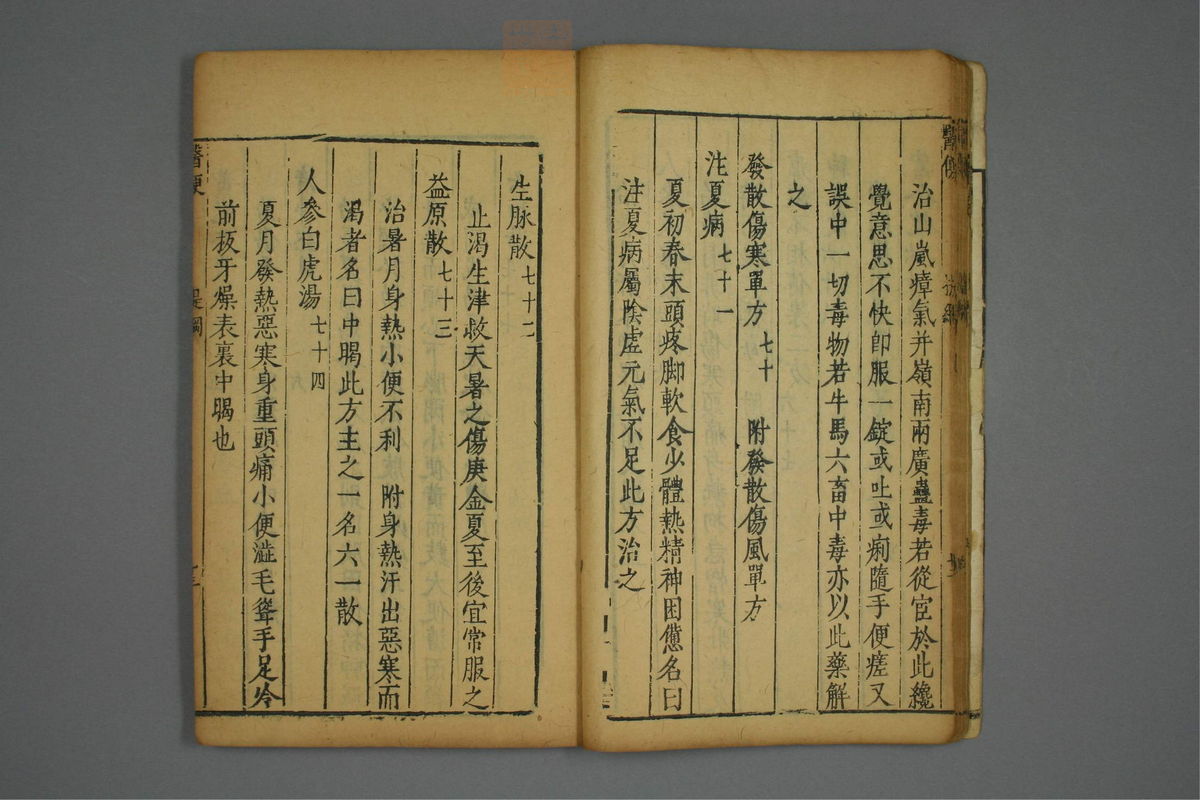 治山嵐瘴氣并嶺南兩廣蠱毒若從宦於此纔
覺意思不快卽服一錠或吐或痢隨手便瘥又
誤中一切毒物若牛馬六畜中毒亦以此藥解
之
發散傷寒單方 七十 附發散傷風單方
注夏病 七十一
夏初春末頭疼脚軟食少體熱精神困憊名曰
注夏病屬陰虛元氣不足此方治之
生脉散 七十二
止渴生津救天暑之傷庚金夏至後宜常服之
益原散 七十三
治暑月身熱小便不利 附身熱汗出惡寒而
渴者名曰中暍此方主之一名六一散
人參白虎湯 七十四
夏月發熱惡寒身重頭痛小便澁毛聳手足冷
前板牙燥表裏中暍也
醫便 提綱